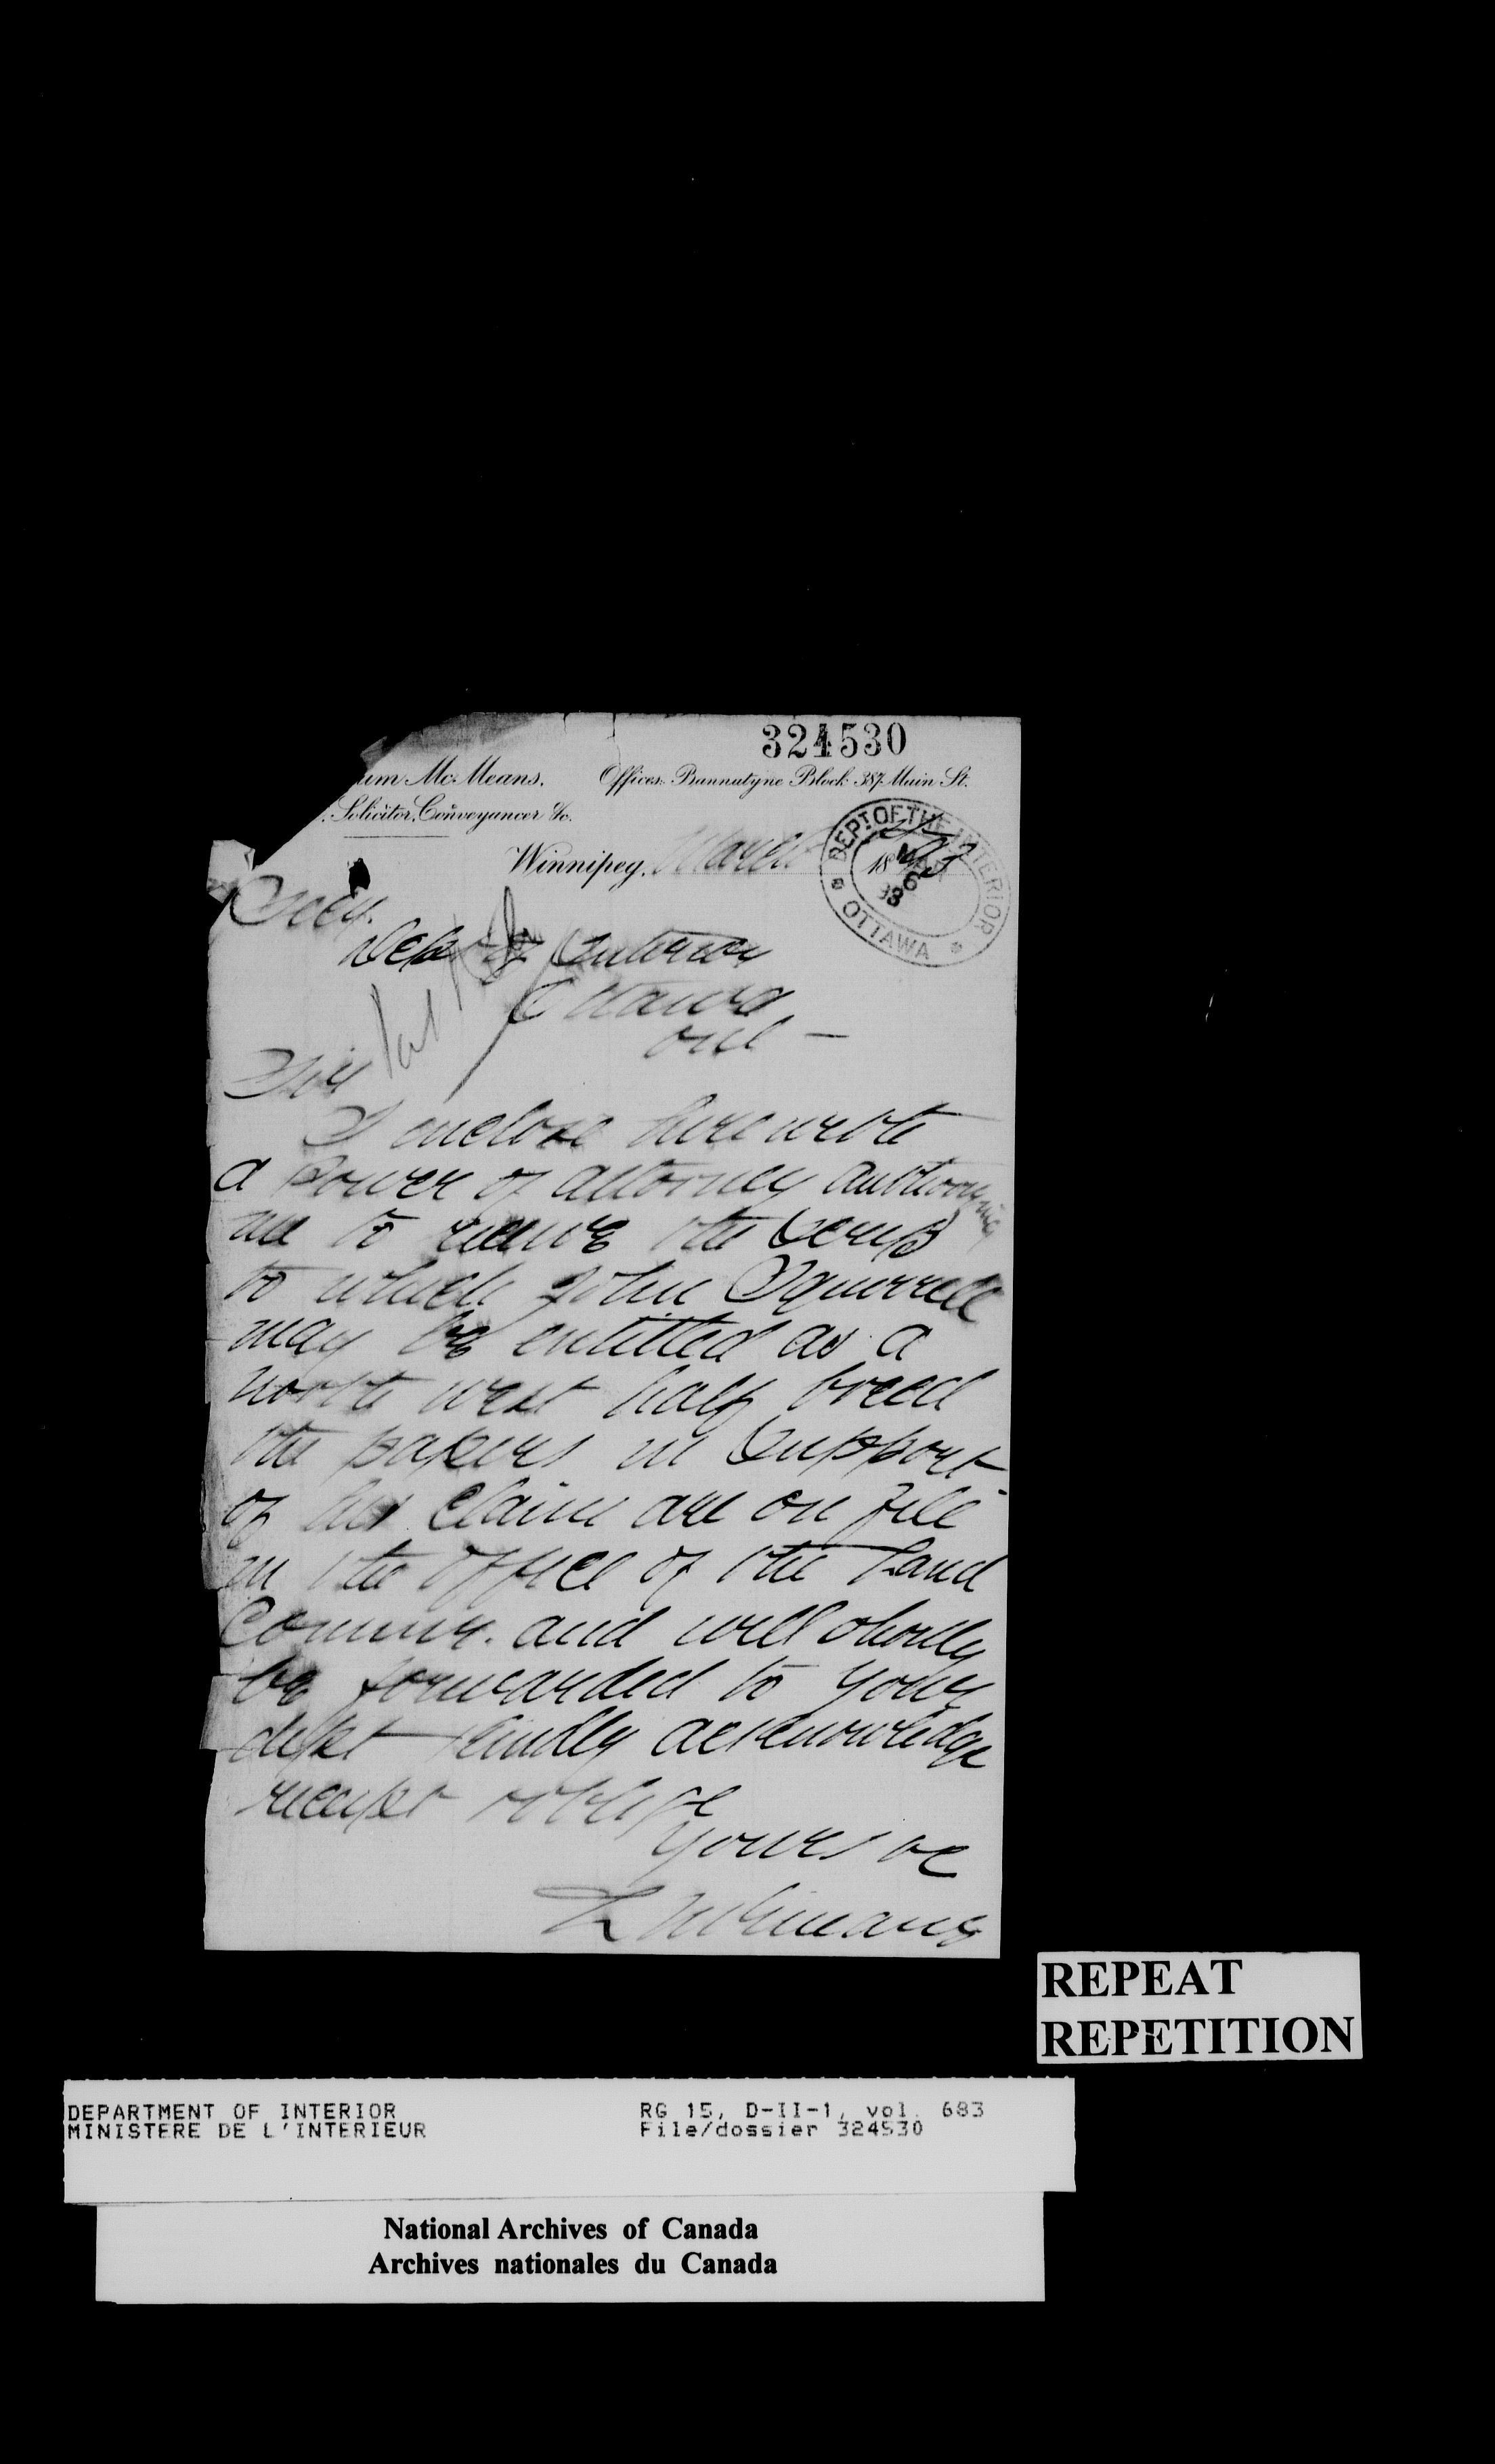 324530
um McMeans. Offices Bannatyne Block 387 Main St.
Solicitor, Conveyancer &c.
Winnipeg, March 18
DEPT OF THE INTERIOR
OTTAWA
Secy.
Dept of Interior
Ottawa
Ont —
Sir
I enclose herewith
a power of attorney authorizing
me to receive the Scrip
to which John Squirrell
may be entitled as a
north west half breed
the papers in support
of his claim are on file
in the office of the Land
Commr. and will shortly
be forwarded to your
dept kindly acknowledge
receipt & oblige
Yours &c
L McMeans
REPEAT
REPETITION
DEPARTMENT OF INTERIOR RG 15, D-II-1, vol. 683
MINISTERE DE L'INTERIEUR File/dossier 324530
National Archives of Canada
Archives nationales du Canada